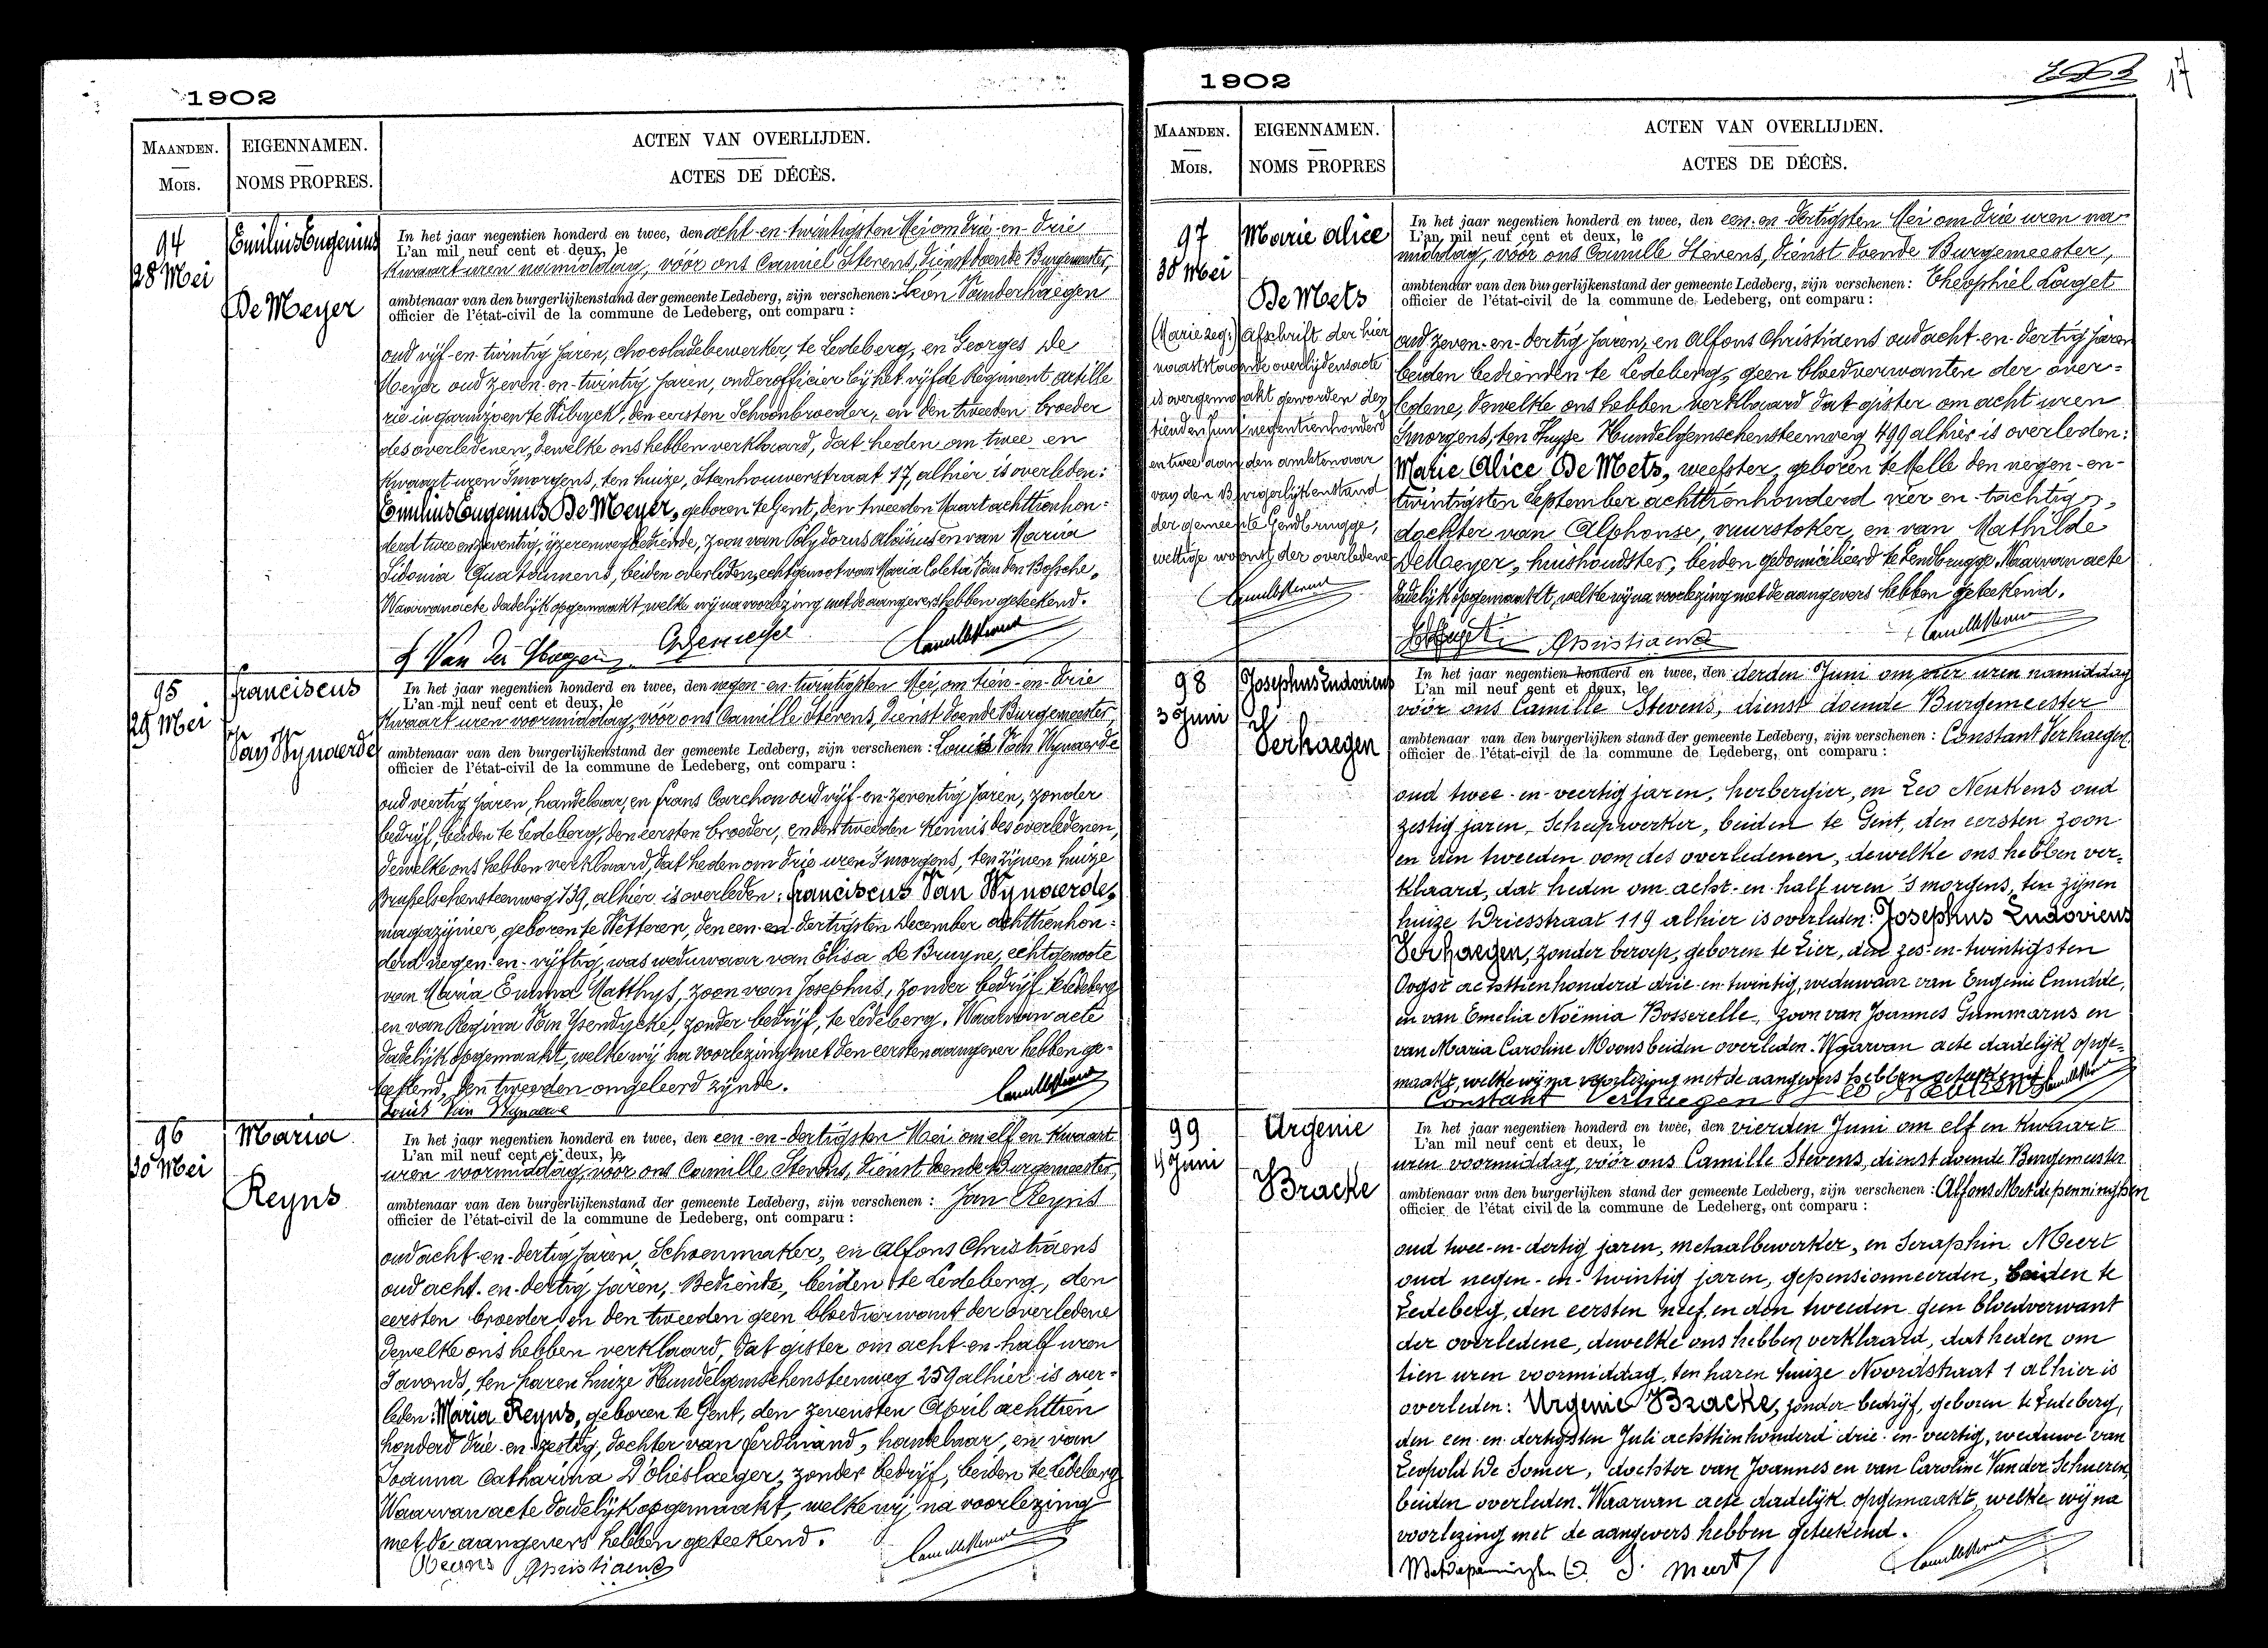 1902
MAANDEN.
Mois.
EIGENNAMEN.
NOMS PROPRES.
ACTEN VAN OVERLIJDEN.
ACTES DE DÉCÈS.
94
28 Mei
Emilius Eugenius
De Meyer
In het jaar negentien honderd en twee, den acht-en-twintigsten Mei om drie-en-drie
L'an mil neuf cent et deux, le
Kwaart uren namiddag, vóór ons Camiel Stevens, dienst doende Burgemeester,
ambtenaar van den burgerlijkenstand der gemeente Ledeberg, zijn verschenen: Leon Vanderhaegen
officier de l'état-civil de la commune de Ledeberg, ont comparu :
oud vijf-en-twintig jaren, chocoladebewerker, te Ledeberg, en Georges De
Meyer oud zeven-en-twintig jaren, onderofficier bij het vijfde Regiment artille
rie in garnizoen te Wilryck, den eersten Schoonbroeder, en den tweeden broeder
des overledenen, dewelke ons hebben verklaard, dat heden om twee en
Kwaart uren 's morgens, ten huize, Steenhouwerstraat 17, alhier is overleden:
Emilius Eugenius De Meyer, geboren te Gent, den tweeden Maart achttienhon-
derd twee en zeventig, ijzerenwegbediende, zoon van Polydorus Aloïsius en van Maria
Sidonia Quatannens, beiden overleden, echtgenoot van Maria Coleta Van den Bossche.
Waarvan acte dadelijk opgemaakt, welke wij na voorlezing met de aangevers hebben geteekend.
L Van der Haegen GDemeyer Camille Stevens
95
29 Mei
Franciscus
Van Wynaerde
In het jaar negentien honderd en twee, den negen-en-twintigsten Mei, om tien-en-drie
L'an mil neuf cent et deux, le
Kwaart uren voormiddag, vóór ons Camille Stevens, dienst doende Burgemeester,
ambtenaar van den burgerlijkenstand der gemeente Ledeberg, zijn verschenen : Louis Van Wynaerde
officier de l'état-civil de la commune de Ledeberg, ont comparu :
oud veertig jaren, handelaar, en Frans Carchon oud vijf-en-zeventig jaren, zonder
bedrijf, beiden te Ledeberg, den eersten broeder, en den tweeden Kennis des overledenen,
dewelke ons hebben verklaard, dat heden om drie uren 's morgens, ten zijnen huize
Brusselschensteenweg 139, alhier is overleden: Franciscus Van Wynaerde,
magazijnier, geboren te Wetteren, den een-en-dertigsten December achttienhon-
derd negen-en-vijftig, was weduwaar van Elisa De Bruyne, echtgenoote
van Maria Emma Matthys, zoon van Josephus, zonder bedrijf te Ledeberg
en van Regina Van Ysendycke, zonder bedrijf, te Ledeberg. Waarvan acte
dadelijk opgemaakt, welke wij na voorlezing met den eersten aangever hebben ge-
teekend, den tweeden ongeleerd zijnde.
Louis Van Wynaerde Camille Stevens
96
30 Mei
Maria
Reyns
In het jaar negentien honderd en twee, den een-en-dertigsten Mei om elf en kwaart
L'an mil neuf cent et deux, le
uren voormiddag, vóór ons Camille Stevens, dienst doende Burgemeester,
ambtenaar van den burgerlijkenstand der gemeente Ledeberg, zijn verschenen : Jan Reyns
officier de l'état-civil de la commune de Ledeberg, ont comparu :
oud acht-en-dertig jaren, Schoenmaker, en Alfons Christiaens
oud acht-en-dertig jaren, Bediende, beiden te Ledeberg, den
eersten broeder, en den tweeden geen bloedverwant der overledene
dewelke ons hebben verklaard, dat gister om acht-en-half uren
's avonds, ten haren huize Hundelgemschensteenweg 259 alhier is over-
leden: Maria Reyns, geboren te Gent, den zevensten April achttien
honderd drie-en-zestig, dochter van Ferdinand, handelaar, en van
Joanna Catharina D'olieslaeger, zonder bedrijf, beiden te Ledeberg
Waarvan acte dadelijk opgemaakt, welke wij na voorlezing
met de aangevers hebben geteekend.
JReyns Christiaens Camille Stevens
1902
17
MAANDEN.
Mois.
EIGENNAMEN.
NOMS PROPRES
ACTEN VAN OVERLIJDEN.
ACTES DE DÉCÈS.
97
30 Mei
Marie Alice
De Mets
Afschrift der hier
naaststaande overlijdensacte
is overgemaakt geworden den
tienden Juni negentienhonderd
en twee aan den ambtenaar
van den Burgerlijkenstand
der gemeente Gendbrugge,
wettige woonst der overledene
Camille Stevens
In het jaar negentien honderd en twee, den een-en-dertigsten Mei om drie uren na
L'an mil neuf cent et deux, le
middag, vóór ons Camille Stevens, dienst doende Burgemeester,
ambtenaar van den burgerlijkenstand der gemeente Ledeberg, zijn verschenen: Theophiel Laget
officier de l'état-civil de la commune de Ledeberg, ont comparu :
oud zeven-en-dertig jaren, en Alfons Christiaens oud acht-en-dertig jaren
beiden bedienden te Ledeberg, geen bloedverwanten der over-
ledene, dewelke ons hebben verklaard dat gister om acht uren
's morgens, ten huize Hundelgemschensteenweg 499 alhier is overleden:
Marie Alice De Mets, weefster, geboren te Melle den negen-en-
twintigsten September achttienhonderd vier en tachtig,
dochter van Alphonse, vuurstoker, en van Mathilde
De Maeyer, huishoudster, beiden gedomicilieerd te Gendbrugge. Waarvan acte
dadelijk opgemaakt, welke wij na voorlezing met de aangevers hebben geteekend.
Christiaens Camille Stevens
98
3 Juni
Josephus Ludovicus
Verhaegen
In het jaar negentien honderd en twee, den derden Juni om vier uren namiddag
L'an mil neuf cent et deux, le
vóór ons Camille Stevens, dienst doende Burgemeester
ambtenaar van den burgerlijken stand der gemeente Ledeberg, zijn verschenen : Constant Verhaegen
officier de l'état-civil de la commune de Ledeberg, ont comparu :
oud twee-en-veertig jaren, herbergier, en Leo Neukens oud
zestig jaren, Scheepwerker, beiden te Gent, den eersten zoon
en den tweeden oom des overledenen, dewelke ons hebben ver-
klaard, dat heden om acht-en-half uren 's morgens, ten zijnen
huize Driesstraat 119 alhier is overleden: Josephus Ludovicus
Verhaegen, zonder beroep, geboren te Lier, den zes-en-twintigsten
Oogst achttienhonderd drie-en-twintig, weduwaar van Eugenie Cnudde,
en van Emelia Noëmia Bosserelle, zoon van Joannes Gummarus en
van Maria Caroline Moons beiden overleden. Waarvan acte dadelijk opge-
maakt, welke wij na voorlezing met de aangevers hebben geteekend.
Constant Verhaegen Camille Stevens
99
4 Juni
Urgenie
Bracke
In het jaar negentien honderd en twee, den vierden Juni om elf en kwaart
L'an mil neuf cent et deux, le
uren voormiddag, vóór ons Camille Stevens, dienst doende Burgemeester
ambtenaar van den burgerlijken stand der gemeente Ledeberg, zijn verschenen : Alfons Metdepenninghen
officier de l'état civil de la commune de Ledeberg, ont comparu :
oud twee-en-dertig jaren, metaalbewerker, en Seraphin Meert
oud negen-en-twintig jaren, gepensionneerden, beiden te
Ledeberg, den eersten neef, en den tweeden geen bloedverwant
der overledene, dewelke ons hebben verklaard, dat heden om
tien uren voormiddag ten haren huize Noordstraat 1 alhier is
overleden: Urgenie Bracke, zonder bedrijf, geboren te Ledeberg,
den een-en-dertigsten Juli achttienhonderd drie-en-veertig, weduwe van
Leopold De Somer, dochter van Joannes en van Caroline Van der Schueren,
beiden overleden. Waarvan acte dadelijk opgemaakt, welke wij na
voorlezing met de aangevers hebben geteekend.
Metdepenninghen S. Meert Camille Stevens